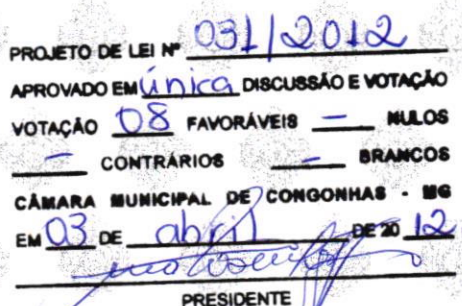 PROJETO DE LEI Nº 031/2012
APROVADO EM única DISCUSSÃO E VOTAÇÃO
VOTAÇÃO 08 FAVORÁVEIS — NULOS
— CONTRÁRIOS — BRANCOS
CÂMARA MUNICIPAL DE CONGONHAS - MG
EM 03 DE abril DE 20 12
PRESIDENTE